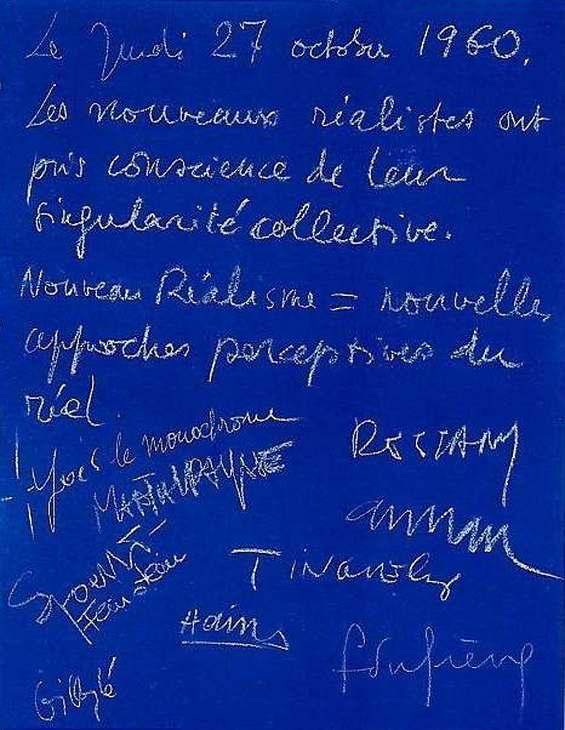 Le Jeudi 27 octobre 1960.
Les nouveaux réalistes ont
pris conscience de leur
singularité collective.
Nouveau Réalisme = nouvelles
approches perceptives du
réel.
Yves le monochrome
RESTANY
MARTIAL RAYSSE
arman
Spoerri
Feinstein
Tinguely
Hains
f dufrêne
Villeglé